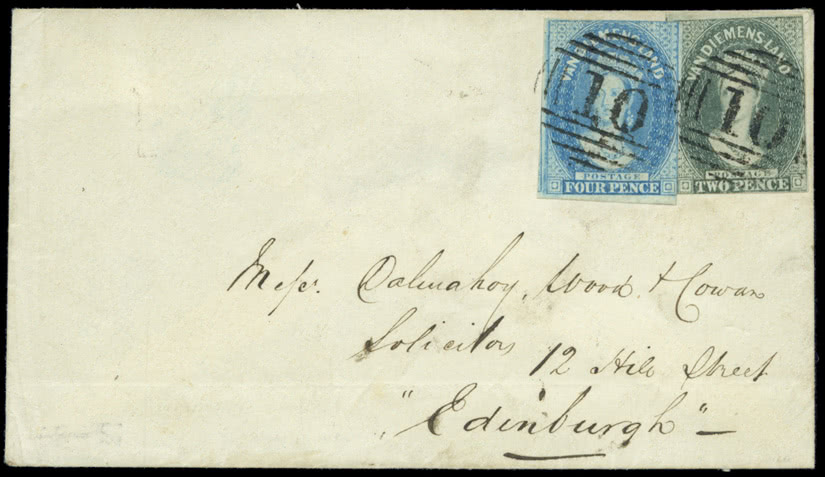 VAN DIEMENS LAND
10
POSTAGE
FOUR PENCE
VAN DIEMENS LAND
10
POSTAGE
TWO PENCE
Messrs. Dalmahoy, Wood & Cowan
Solicitors 12 Hill Street
"Edinburgh"